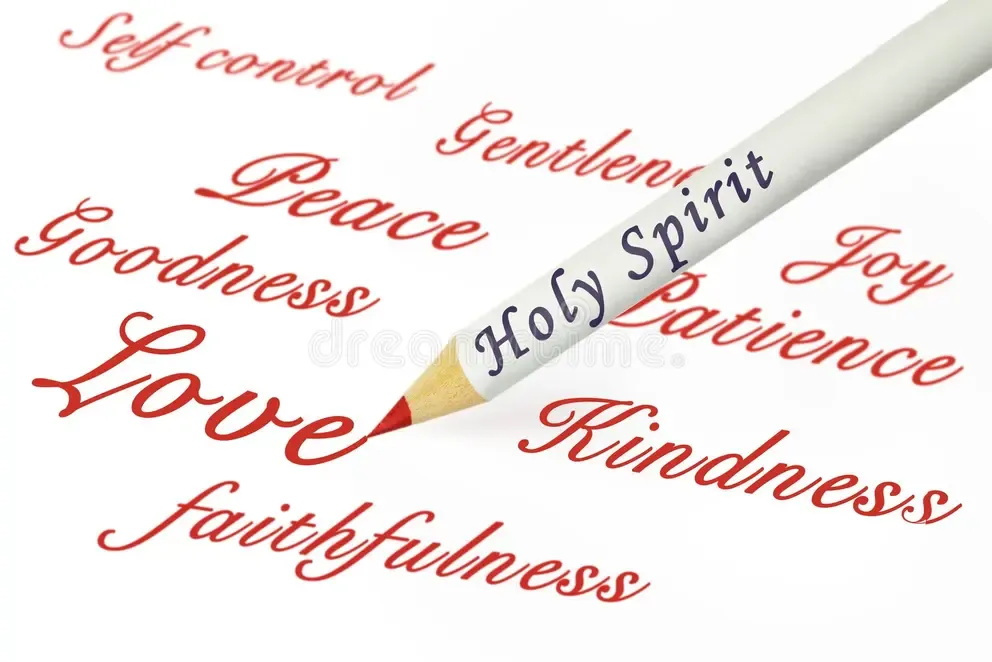 Self control
Gentlene
Peace
Holy Spirit
Goodness
Joy
Patience
Love
dreamstime.
Kindness
faithfulness